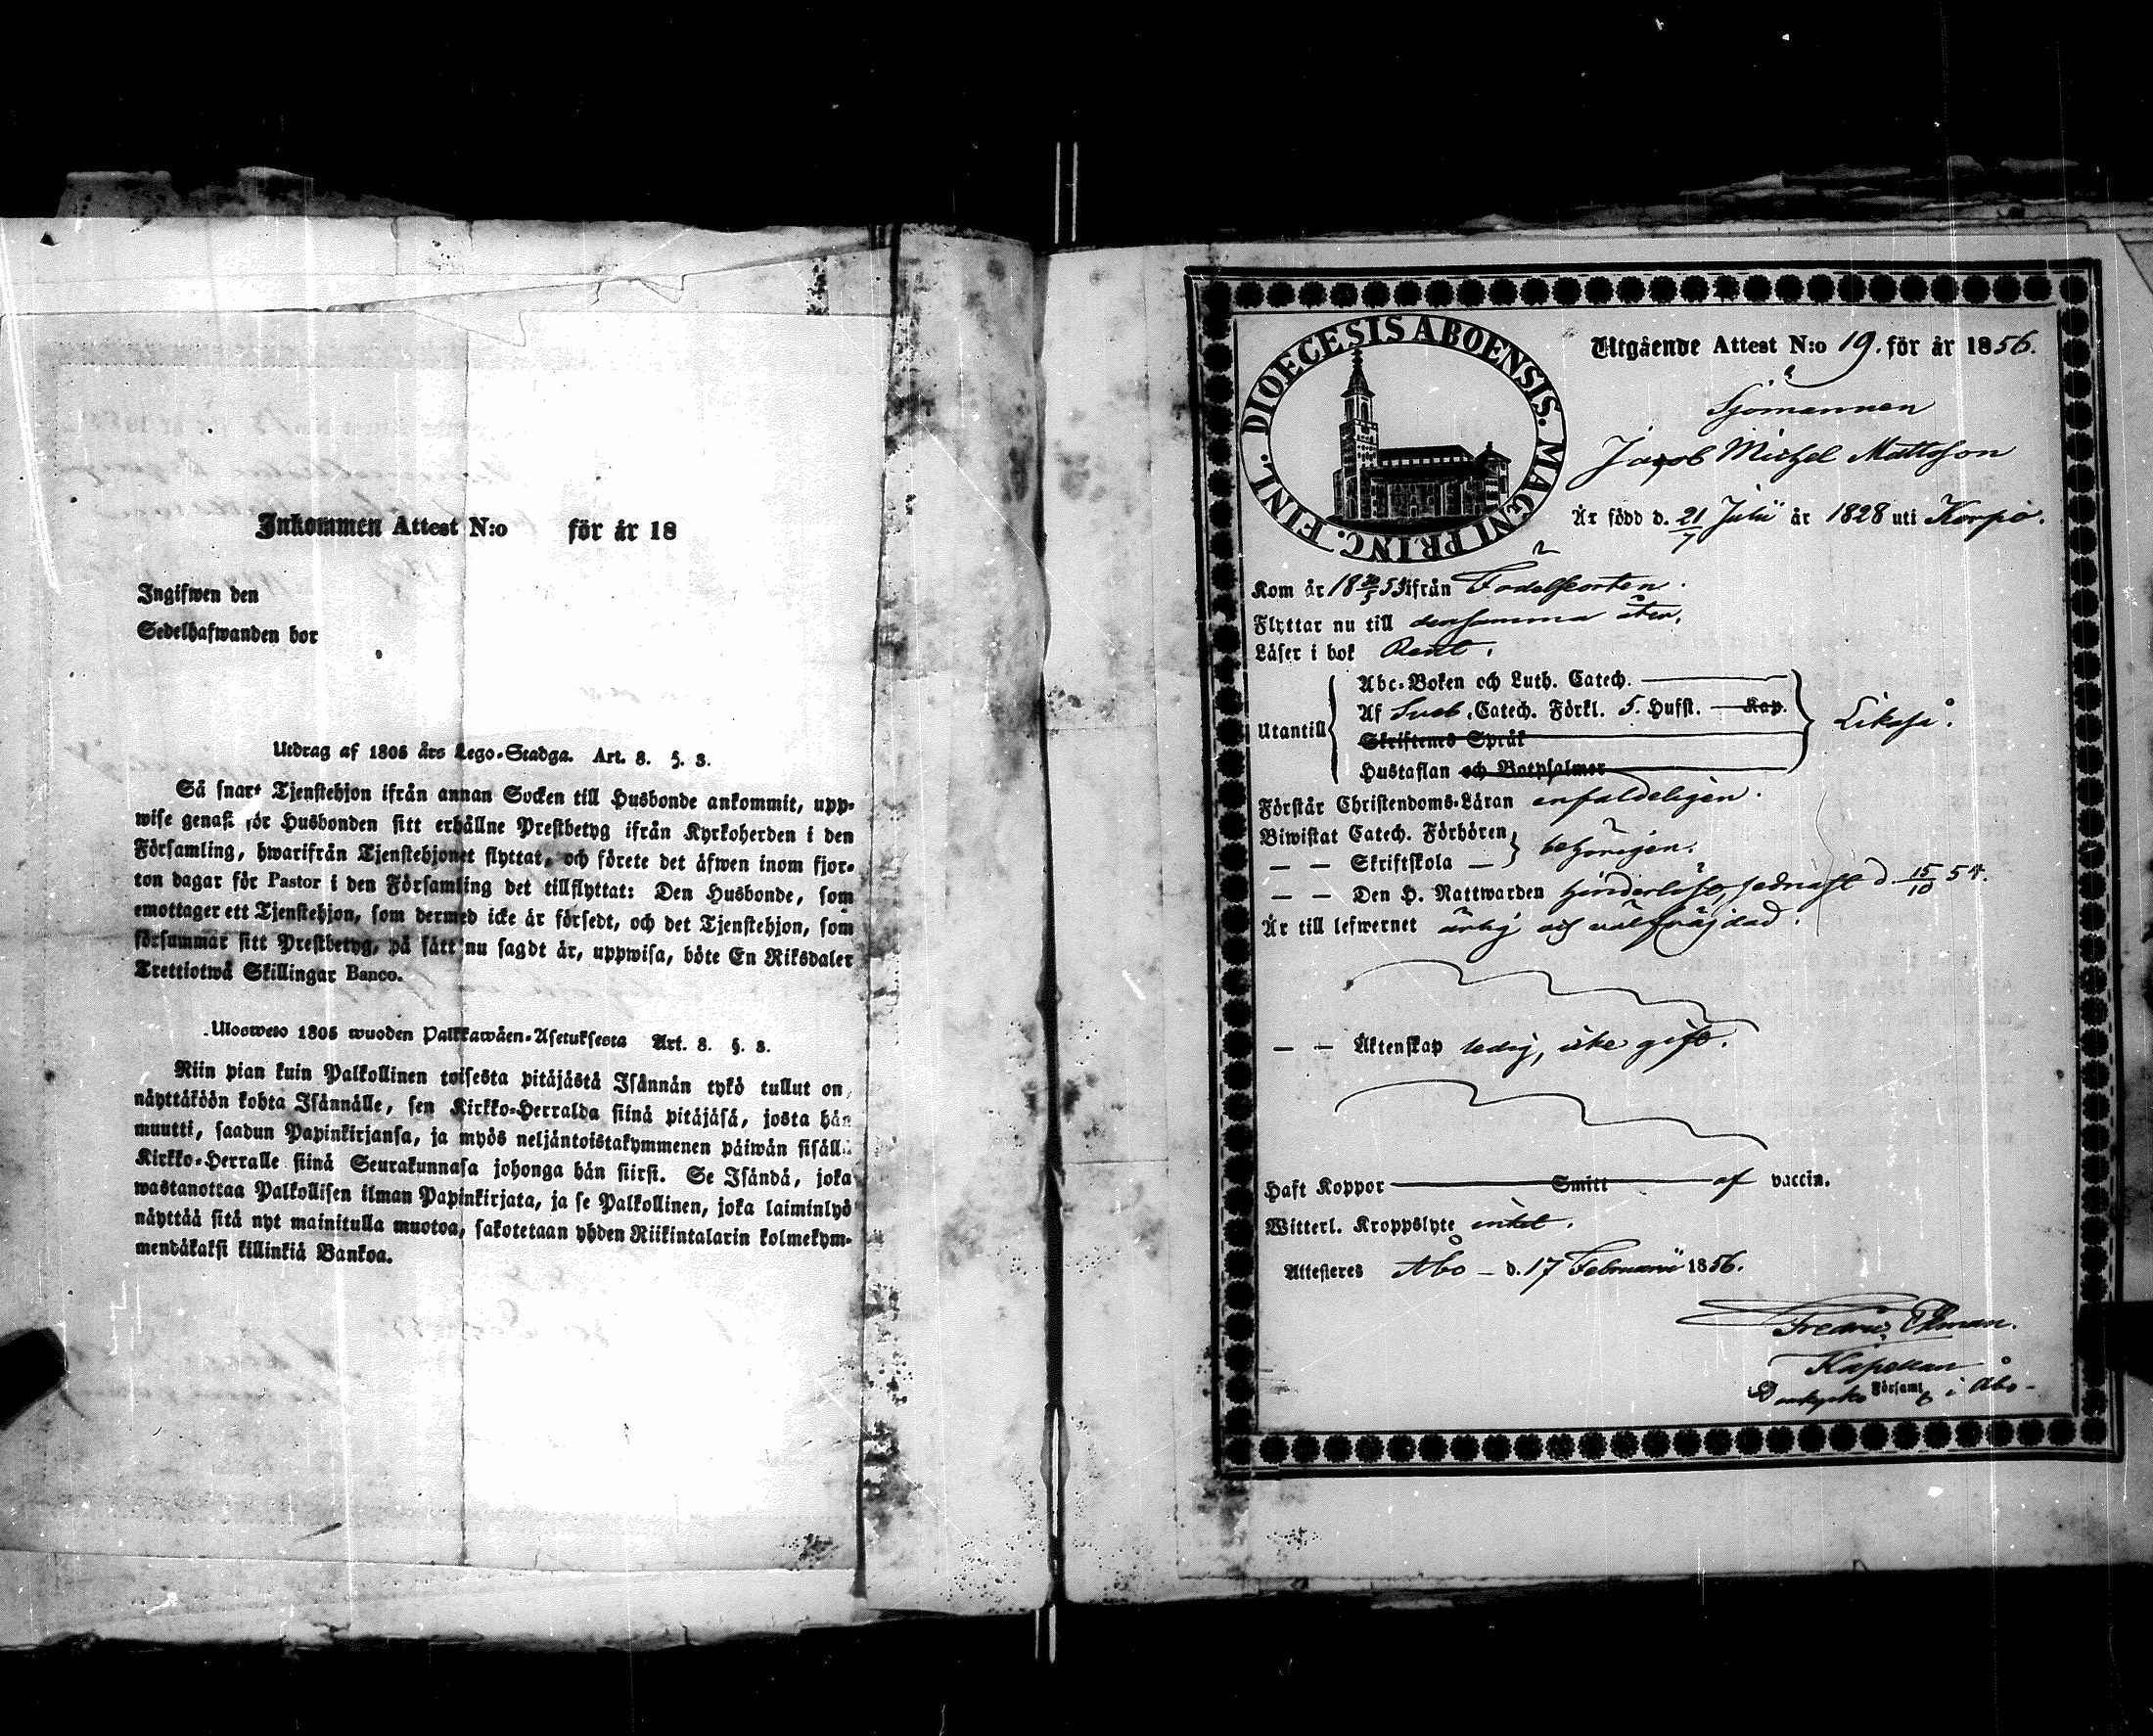 Inkommen Attest N:o för år 18
Ingifwen den
Sedelhafwanden bor
Utdrag af 1805 års Lego-Stadga. Art. 8. §. 3.
Så snart Tjenstehjon ifrån annan Socken till Husbonde ankommit, upp-
wise genast för Husbonden sitt erhållne Prestbetyg ifrån Kyrkoherden i den
Församling, hwarifrån Tjenstehjonet flyttat, och förete det äfwen inom fjor-
ton dagar för Pastor i den Församling det tillflyttat: Den Husbonde, som
emottager ett Tjenstehjon, som dermed icke är försedt, och det Tjenstehjon, som
försummar sitt Prestbetyg, på sätt nu sagdt är, uppwisa, böte En Riksdaler
Trettiotwå Skillingar Banco.
Ulosweto 1805 wuoden Palkkawäen-Asetuksesta Art. 8. §. 3.
Niin pian kuin Palkollinen toisesta pitäjästä Isännän tykö tullut on,
näyttäköön kohta Isännälle, sen Kirkko-Herralda siinä pitäjäsä, josta hän
muutti, saadun Papinkirjansa, ja myös neljäntoistakymmenen päiwän sisällä
Kirkko-Herralle siinä Seurakunnasa johonga hän siirsi. Se Isändä, joka
wastanottaa Palkollisen ilman Papinkirjata, ja se Palkollinen, joka laiminlyö
näyttää sitä nyt mainitulla muotoa, sakotetaan yhden Riikintalarin kolmekym-
mendäkaksi killinkiä Bankoa.
DIOECESIS ABOENSIS. MAGNI PRINC. FINL.
Utgående Attest N:o 19. för år 1856.
Sjömannen
Jacob Michel Mattsson
Är född d. 21/7 Julii år 1828 uti Korpo.
Kom år 18 53 ifrån Födelseorten.
Flyttar nu till densamma åter.
Läser i bok Rent.
Utantill
Abc-Boken och Luth. Catech.
Af Sveb. Catech. Förkl. 5. Hufst. Kap.
Skriftenes Språk
Hustaflan och Botpsalmer
Likaså.
Förstår Christendoms-Läran enfaldeligen.
Biwistat Catech. Förhören
— — Skriftskola — behörigen.
— — Den H. Nattwarden hinderlöst, sednast d. 15/10 54.
Är till lefwernet ärlig och välfräjdad.
— — Äktenskap ledig, icke gift.
Haft Koppor Smitt af vaccin.
Witterl. Kroppslyte intet.
Attesteras Åbo — d. 17 Februarii 1856.
Fredric Ekman.
Kapellan
Domkyrko Församl i Åbo